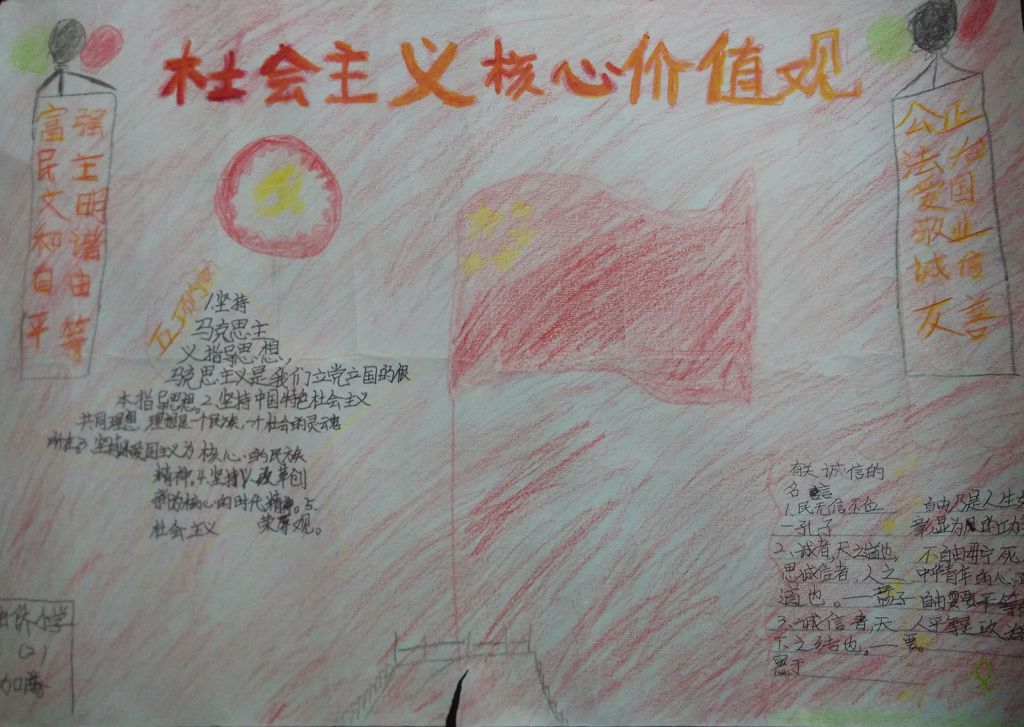 社会主义核心价值观
富强
民主
文明
和谐
自由
平等
公正
法治
爱国
敬业
诚信
友善
五项
1.坚持
马克思主
义指导思想,
马克思主义是我们立党立国的根
本指导思想。2.坚持中国特色社会主义
共同理想,理想是一个民族,一个社会的灵魂
所在3.坚持爱国主义为核心的民族
精神。4.坚持以改革创
新为核心的时代精神。5.
社会主义 荣辱观。
有关诚信的
名言
1.民无信不立
—孔子
2、诚者,天之道也,
思诚信者,人之
道也。——孟子
3、诚信者,天
下之结也。——墨
墨子
自由乃是人生
彰显为
不自由毋宁死
中华青年的心
自由 平等
人平等 政治
小学
(2)
加腾